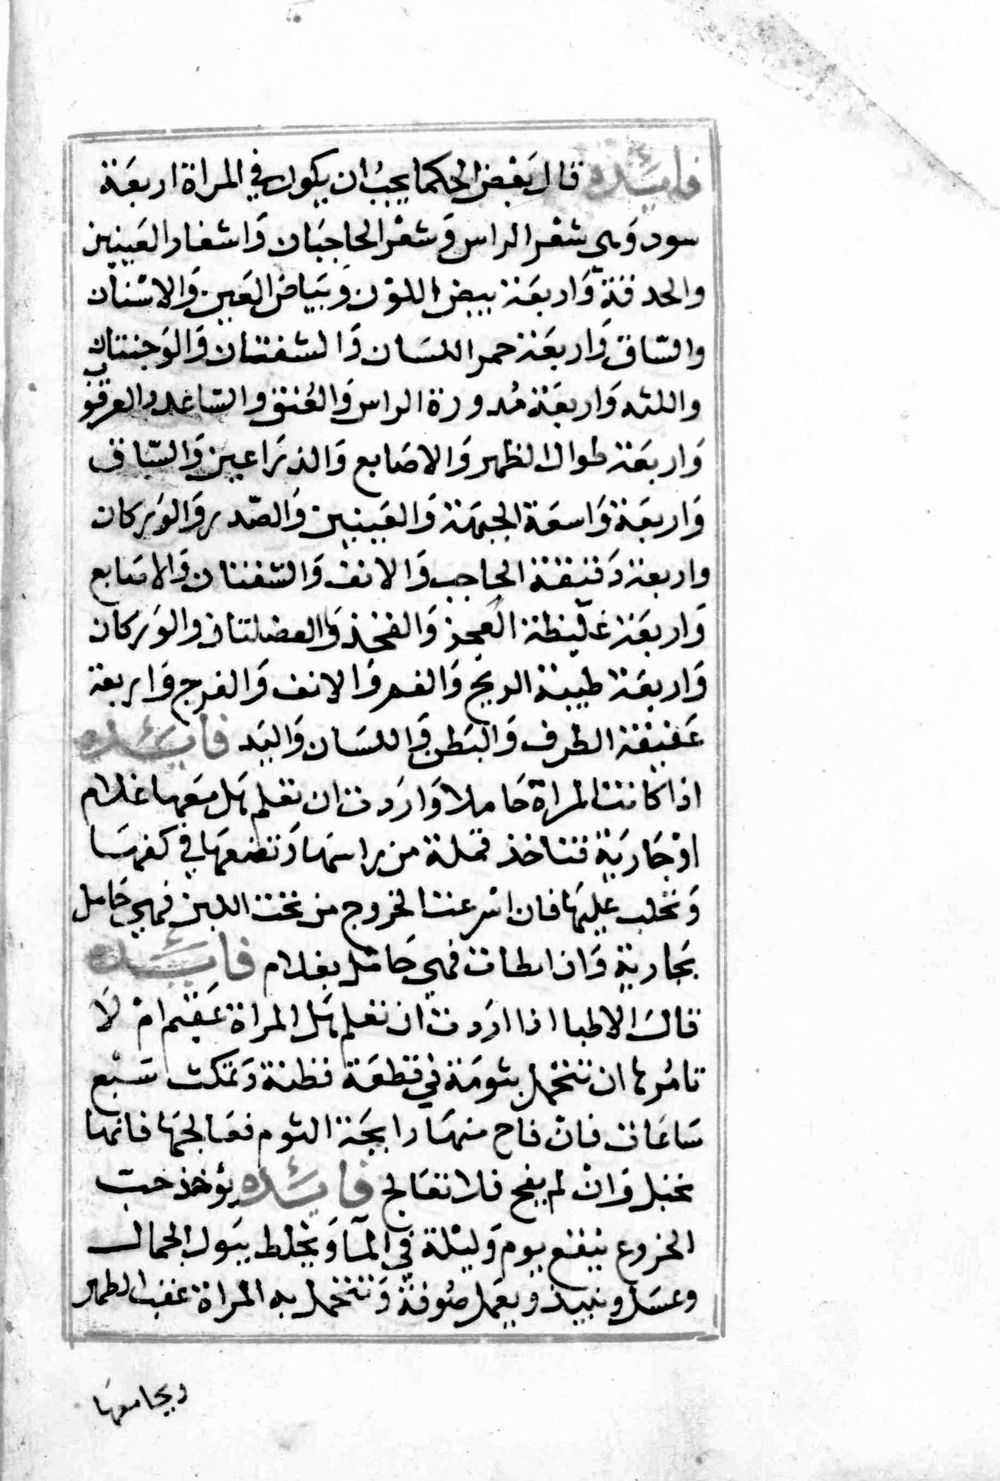 فايئده قال بعض الحكما يجب ان يكون في المراة اربعة
سود وهي شعر الراس وشعر الحاجبان واشفار العينين
والحدقة واربعة بيض اللون وبياض العين والاسنان
والساق واربعة حمر اللسان والشفتان والوجنتان
واللثه واربعة مدورة الراس والعنق والساعد والعرقوب
واربعة طوال الظهر والاصابع والذراعين والساق
واربعة واسعة الجبهة والعينين والصدر والوركان
واربعة دقيقة الحاجب والانف والشفتان والاصابع
واربعة غليظة العجز والفخذ والعضلتان والوركان
واربعة طيبة الريح والفم والانف والفرج واربعة
عفيفة الطرف والبطن واللسان واليد فايئده
اذا كانت المراة حاملا واردت ان تعلم هل معها غلام
او جارية فتاخذ قملة من راسها وتضعها في كفها
وتحلب عليها فان اسرعت الخروج من تحت اللبن فهي حامل
بجارية وان ابطات فهي حامل بغلام فايئده
قالت الاطبا اذا اردت ان تعلم هل المراة عقيم ام لا
تامرها ان تتحمل بثومة في قطعة قطنة وتمكث سبع
ساعات فان فاح منها رايحة الثوم فعالجها فانها
تحبل وان لم يفح فلا تعالج فايئده يؤخذ حب
الخروع ينقع يوم وليلة في المآ ويخلط ببول الجمال
وعسل ونبيذ ويعمل صوفة وتتحمل به المراة عقب الطهر
ويجامعها